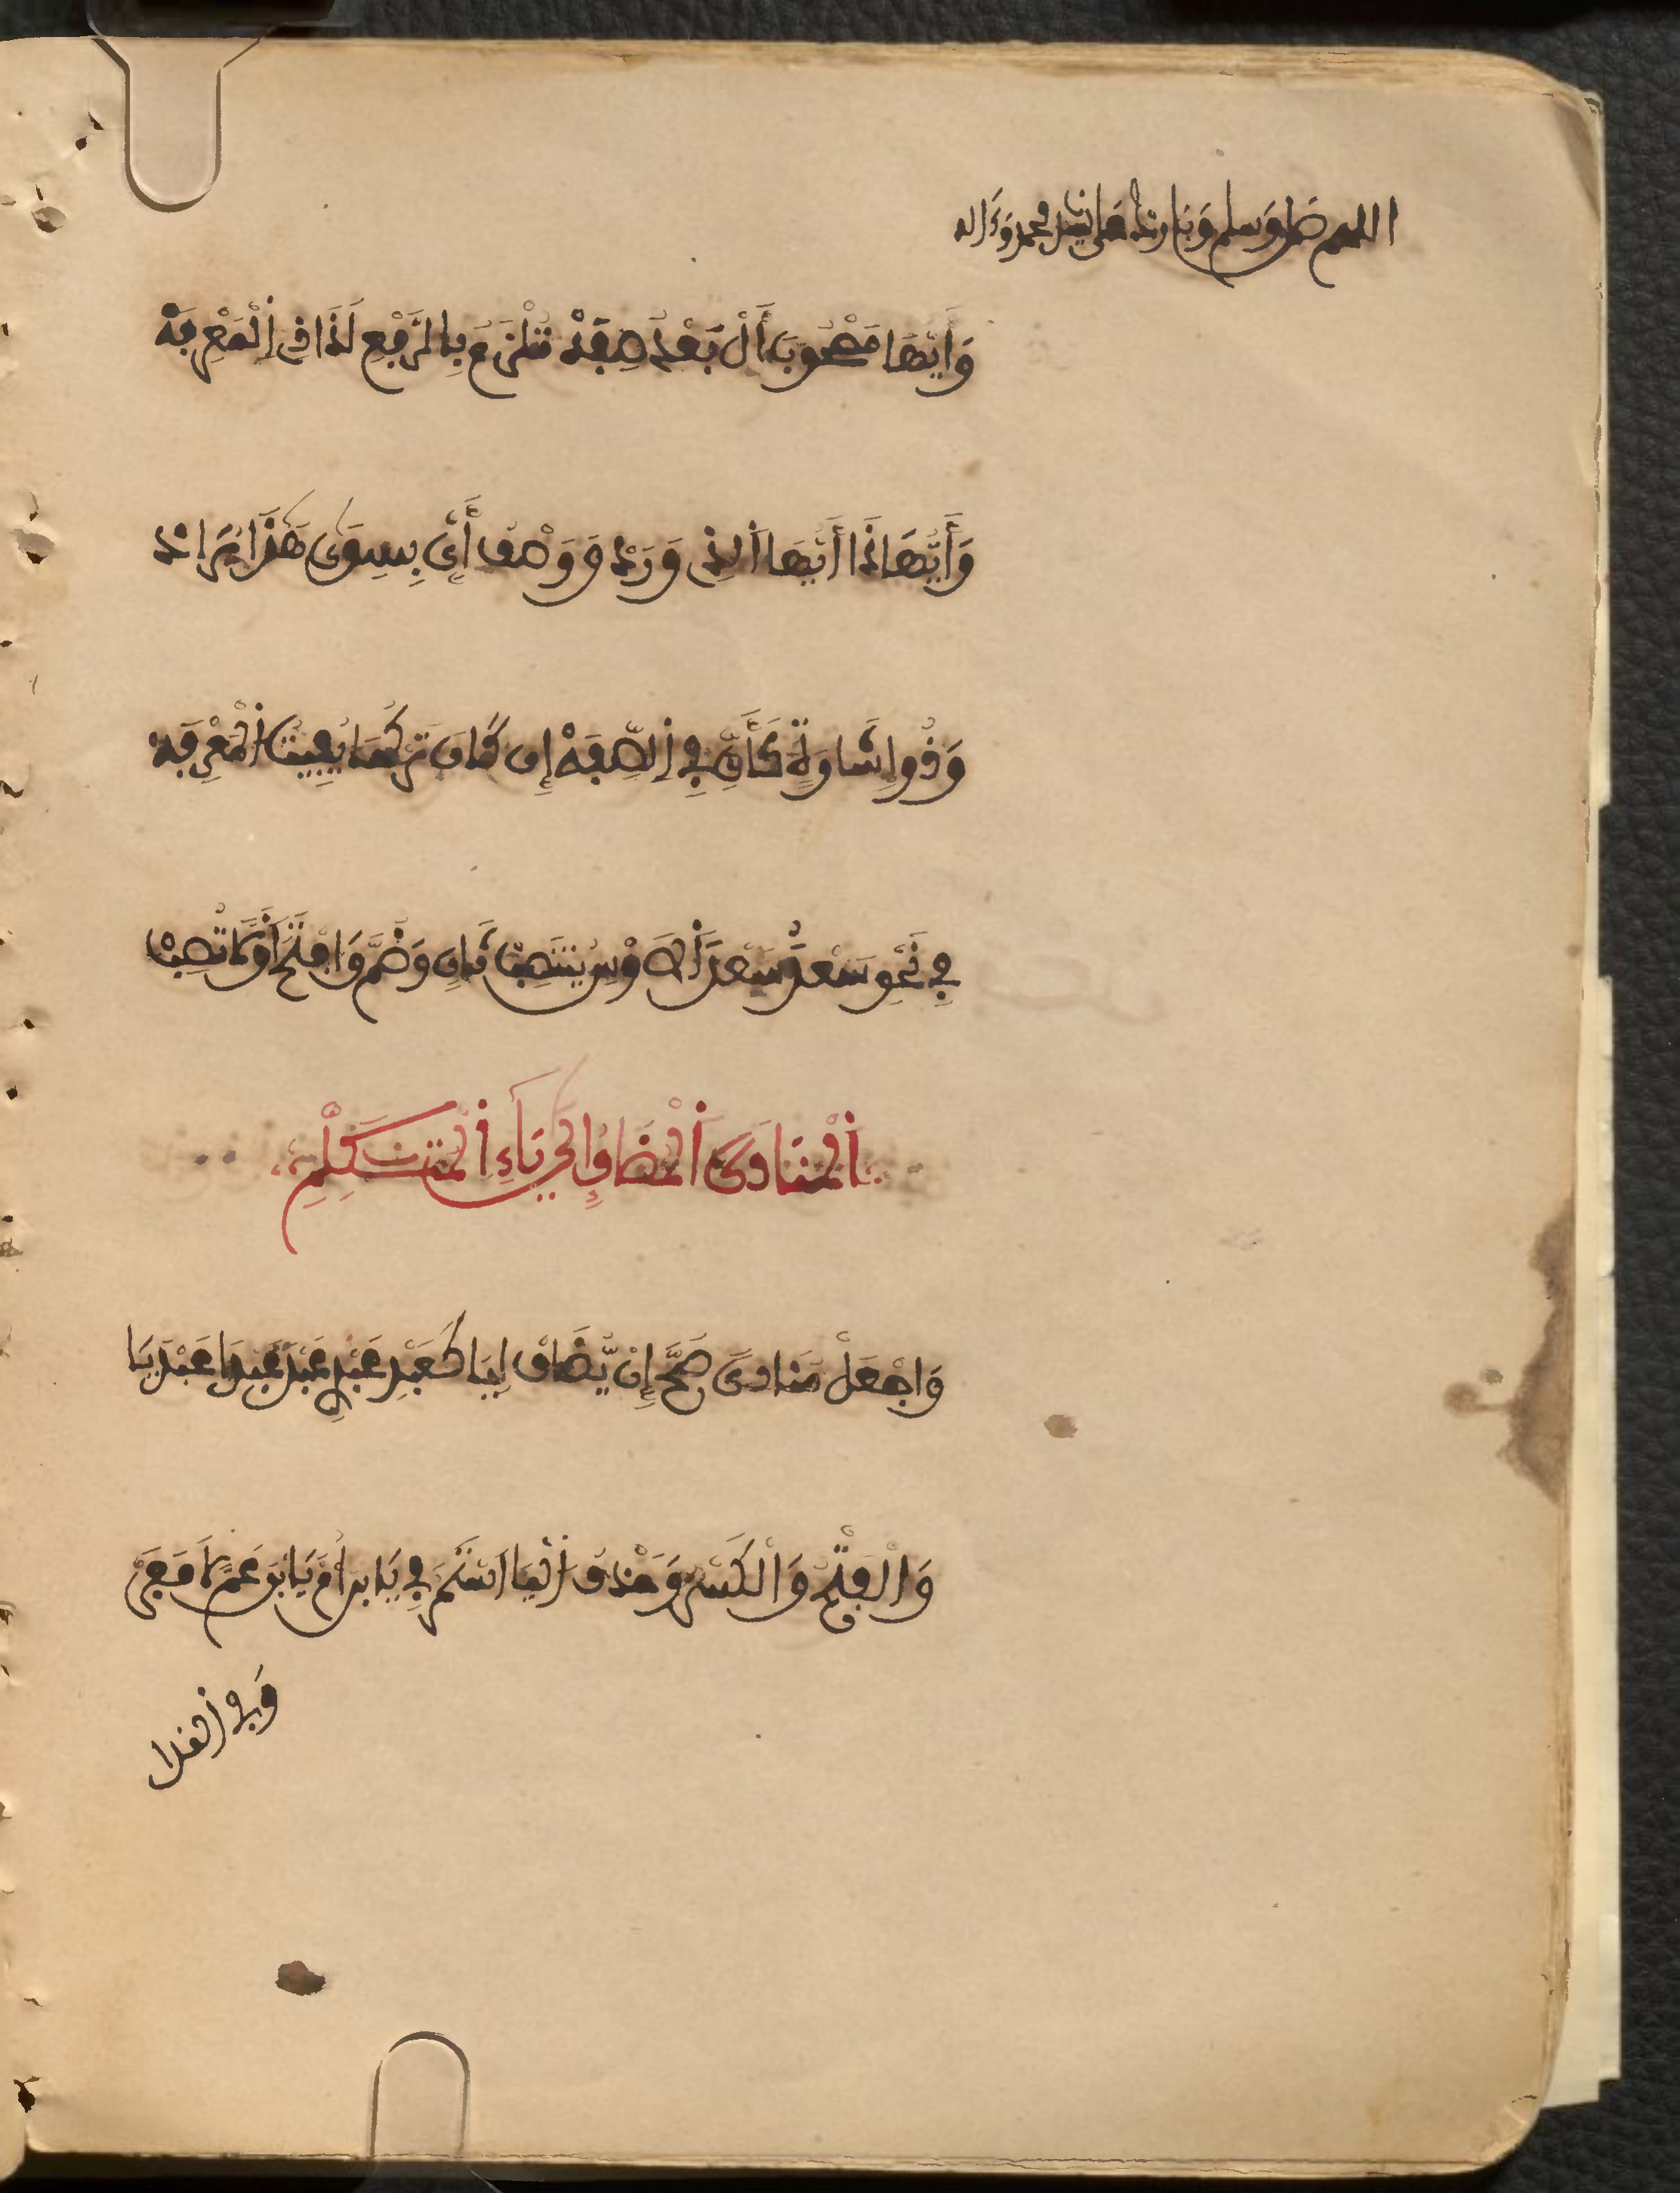 اللهم صل وسلم وبارك على سيدنا محمد وءاله
وَأَيُّهَا مَصْحُوبَ أَلْ بَعْدُ صِفَهْ تَلْزَمُ بِالرَّفْعِ لَدَى ذِى اِلْمَعْرِفَهْ
وَأَيُّهَا ذَا أَيُّهَا اَلذِى وَرَدْ وَوَصْفُ أَىٍّ بِسِوَى هَذَا يُرَدْ
وَذُو إِشَارَةٍ كَأَىٍّ فِي اِلصِّفَهْ إِن كَانَ تَرْكُهَا يُفِيتُ اُلْمَعْرِفَهْ
فِي نَحْوِ سَعْدُ سَعْدَ اَلَاوْسِ يَنتَصِبْ ثَانٍ وَضُمَّ وَافْتَحَ اَوَّلًا تُصِبْ
اَلْمُنَادَى اَلْمُضَافُ إِلَى يَاءِ اِلْمُتَكَلِّمِ
وَاجْعَلْ مُنَادًى صَحَّ إِنْ يُّضَافْ لِيَا كَعَبْدِ عَبْدِي عَبْدَ عَبْدَا عَبْدِيَا
وَالْفَتْحُ وَالْكَسْرُ وَحَذْفُ اُلْيَا اَسْتَمَرّ فِي يَا ابْنَ أُمَّ يَا ابْنَ عَمِّ لَا مَفَرّ
وَفِي اِلنِّدَا